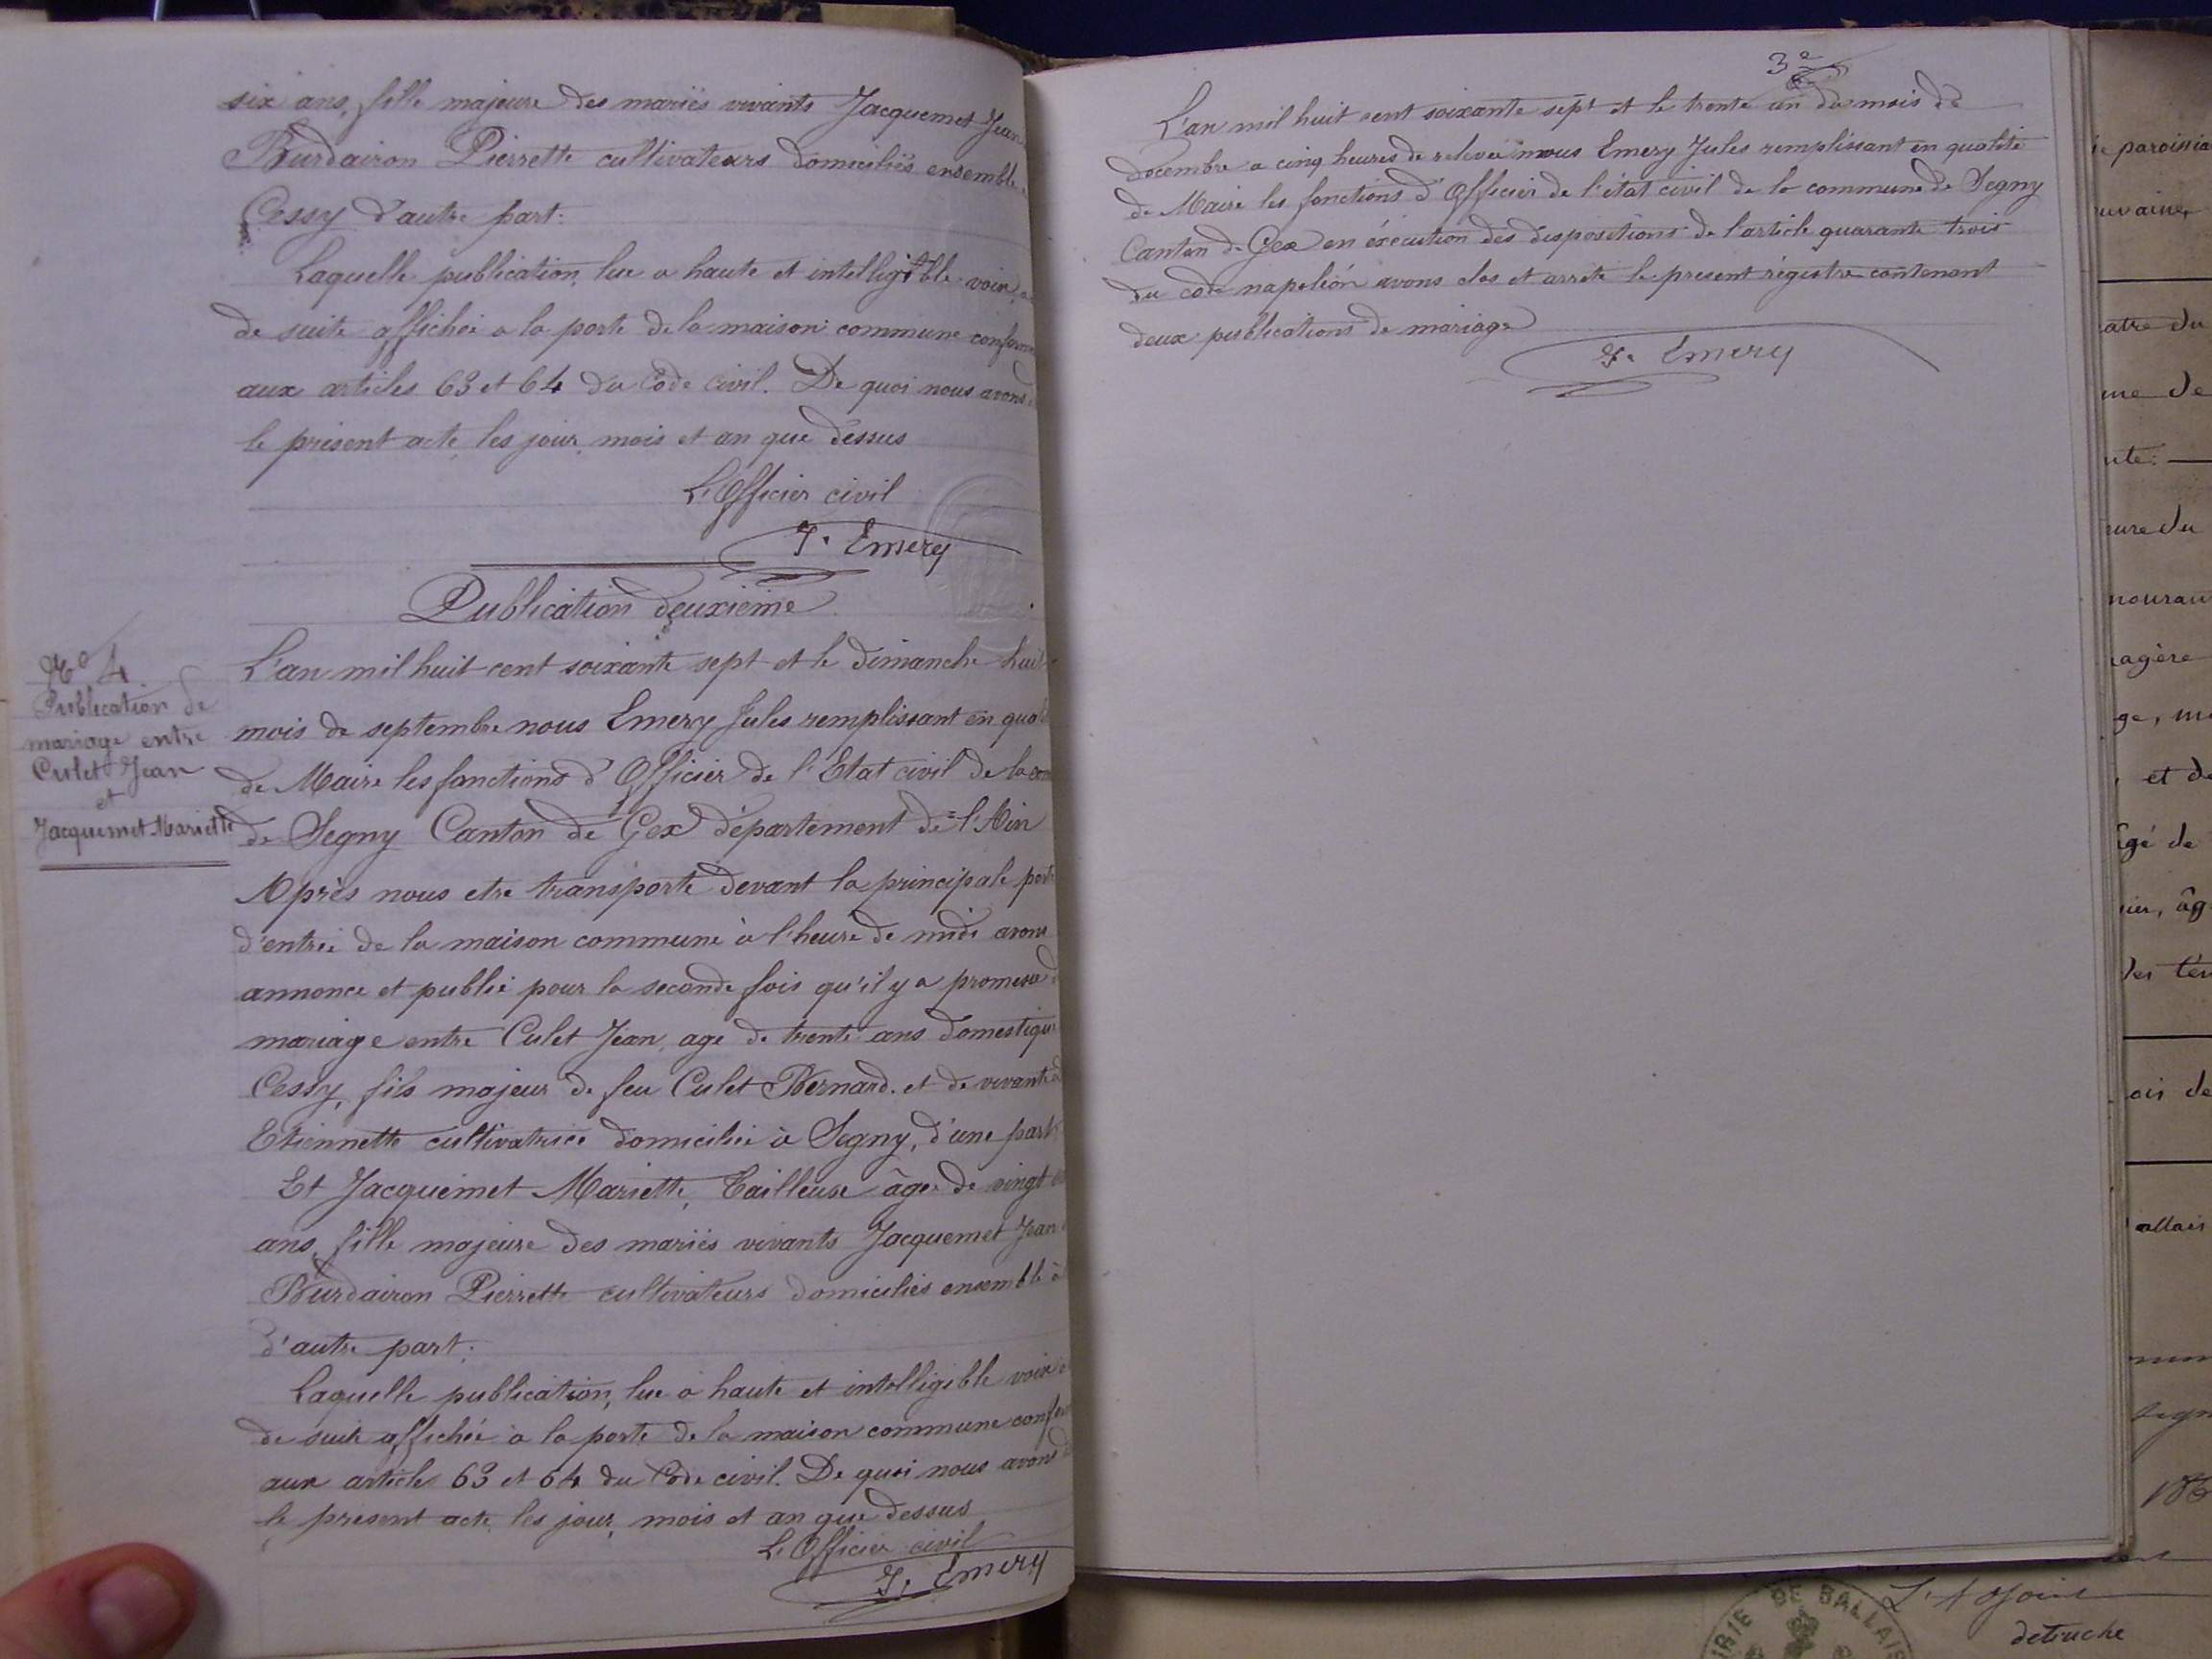 six ans, fille majeure des mariés vivants Jacquemet Jean
Burdairon Pierrette cultivateurs domiciliés ensemble
Cessy d'autre part:
Laquelle publication, lue a haute et intelligible voix,
de suite affichée a la porte de la maison commune
aux articles 63 et 64 du Code civil. De quoi nous avons
le présent acte, les jour, mois et an que dessus
L'Officier civil
J. Emery
Publication deuxième
No 4
Publication de
mariage entre
Culet Jean
et
Jacquemet Mariette
L'an mil huit cent soixante sept et le dimanche huit
mois de septembre nous Emery Jules remplissant en
de Maire les fonctions d'Officier de l'Etat civil de la
de Segny Canton de Gex département de l'Ain
Après nous etre transporté devant la principale porte
d'entrée de la maison commune à l'heure de midi avons
annonce et publié pour la seconde fois qu'il y a promesse
mariage entre Culet Jean, age de trente ans domestique
Cessy, fils majeur de feu Culet Bernard. et de vivante
Etiennette cultivatrice domiciliée à Segny, d'une part
Et Jacquemet Mariette, Tailleuse âgée de vingt
ans, fille majeure des mariés vivants Jacquemet Jean
Burdairon Pierrette cultivateurs domiciliés ensemble à
d'autre part:
Laquelle publication, lue à haute et intelligible voix
de suite affichée à la porte de la maison commune
aux articles 63 et 64 du Code civil. De quoi nous avons
le présent acte, les jour, mois et an que dessus
L'Officier civil
J. Emery
3e
L'an mil huit cent soixante sept et le trente un du mois de
decembre a cinq heures de relevée nous Emery Jules remplissant en qualité
de Maire les fonctions d'Officier de l'état civil de la commune de Segny
Canton de Gex en éxécution des dispositions de l'article quarante trois
du code napoléon avons clos et arrêté le présent régistre contenant
deux publications de mariage
J. Emery
atre du
me de
ure du
agère
et de
âgé de
ois de
allais
MAIRIE DE BALLAIS
L'Adjoint
detruche